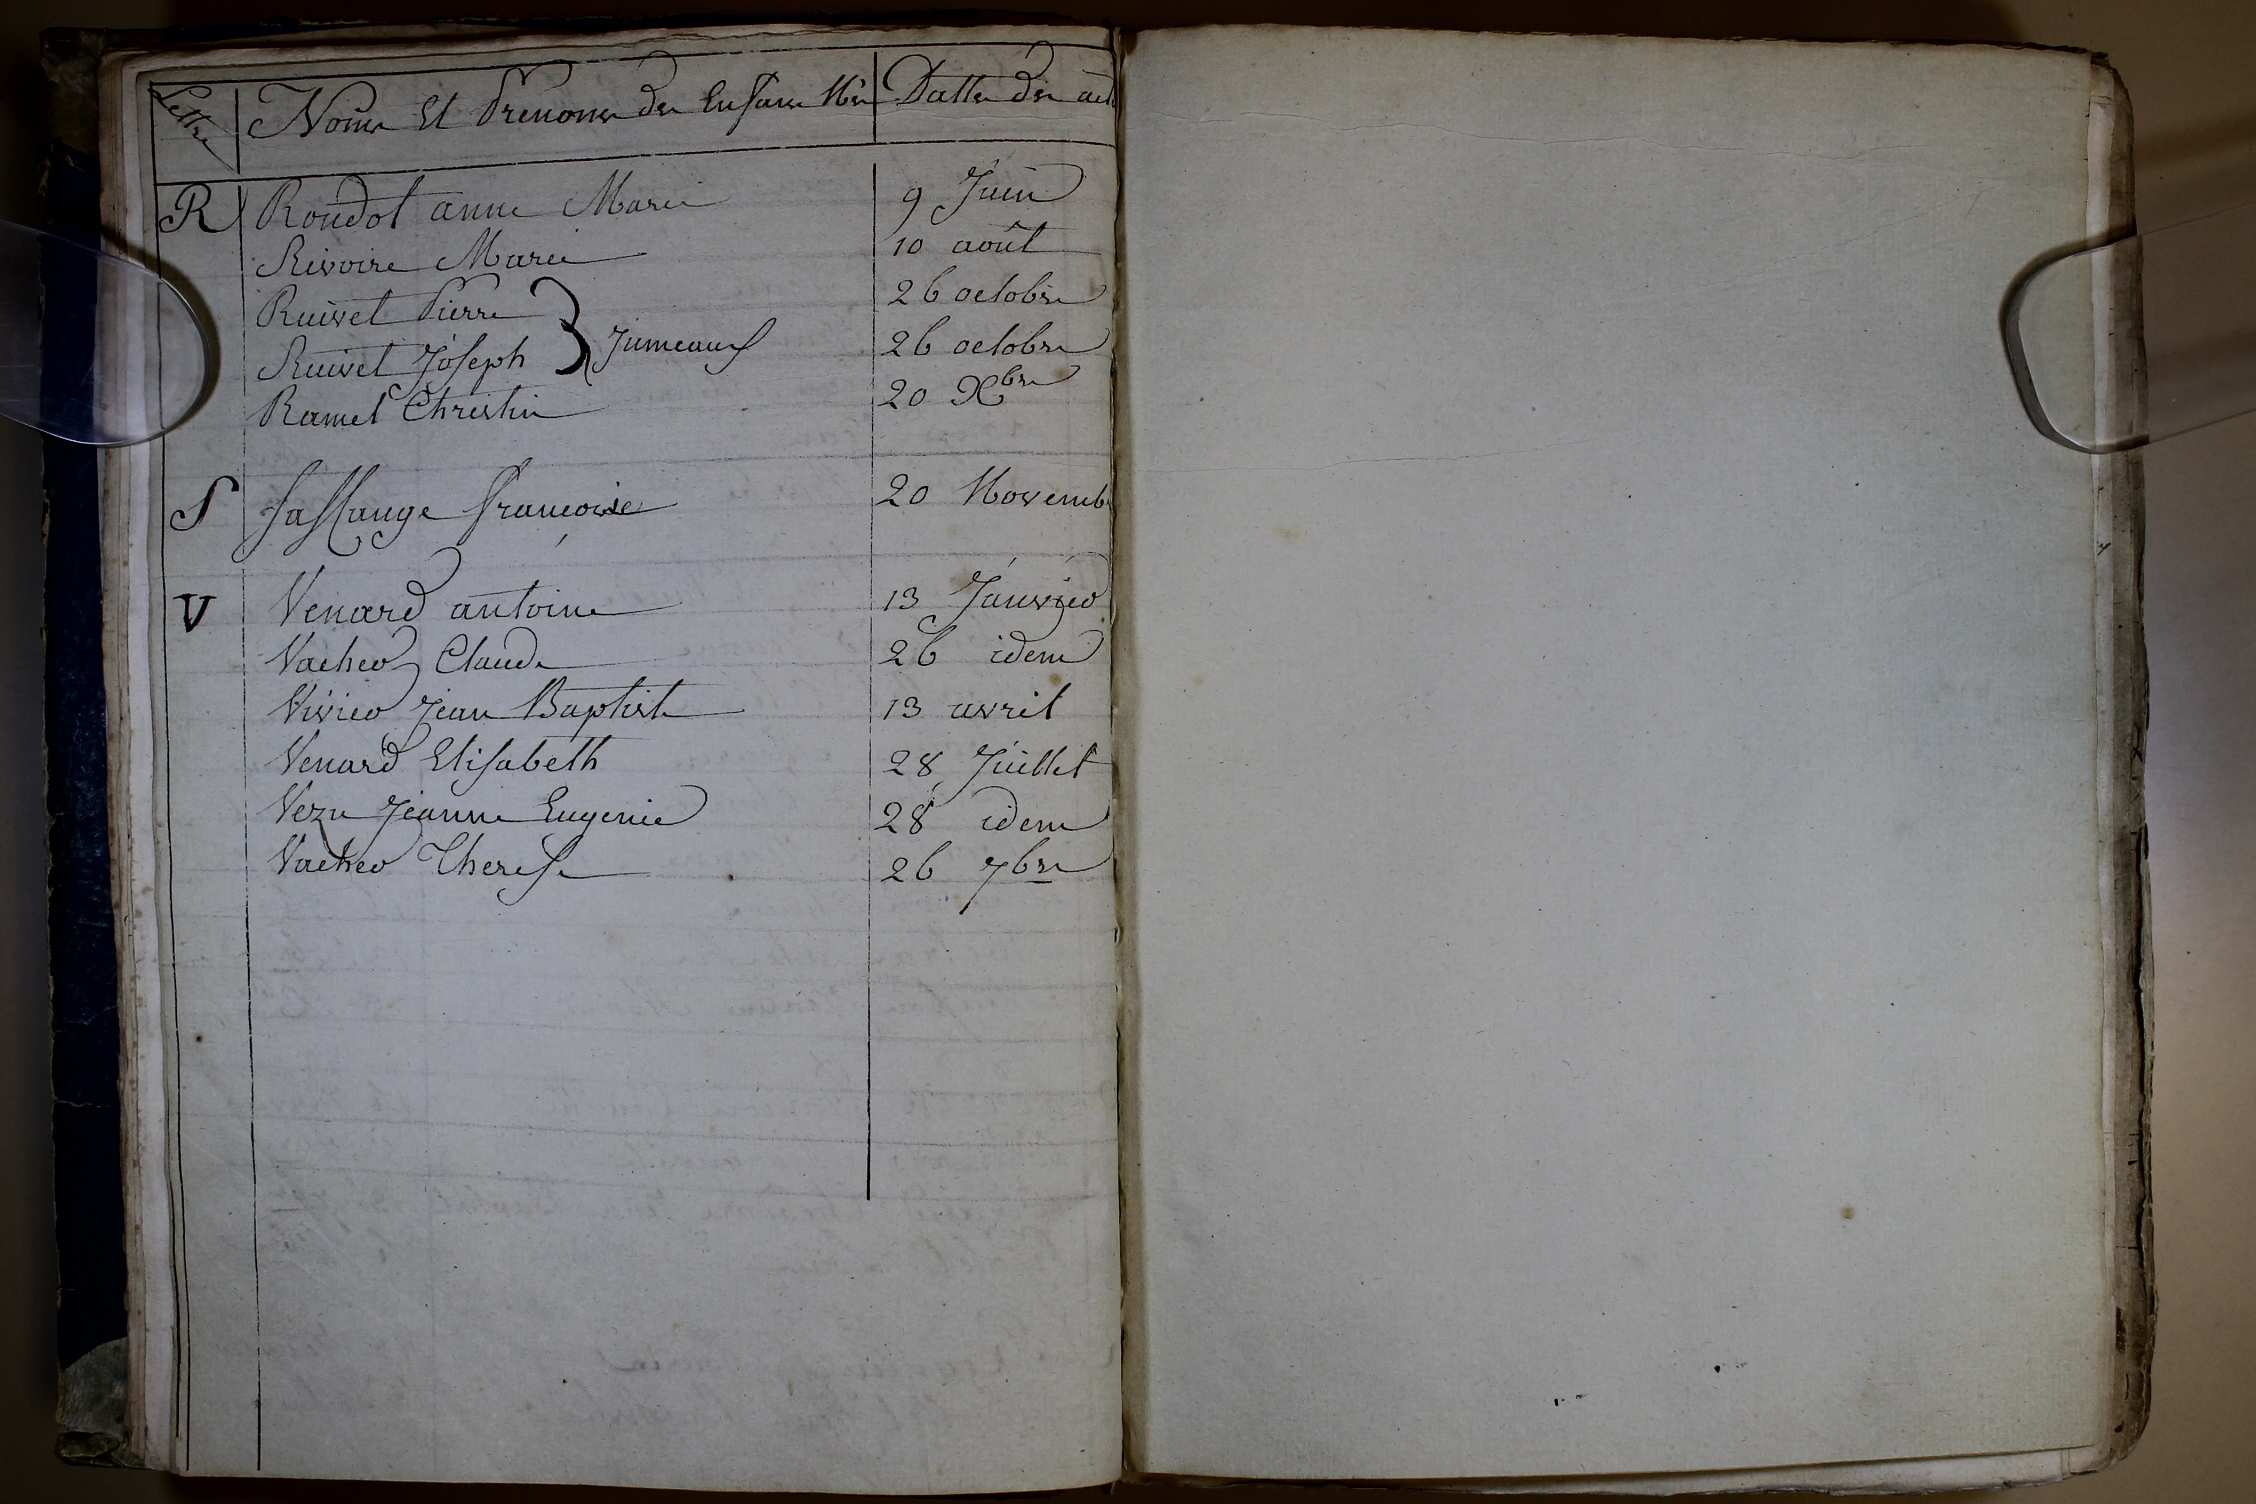 Lettre Noms Et Prenoms des Enfans Nés Datte des act
R Roudot anne Marie 9 Juin
Rivoire Marie 10 août
Ruivet Pierre 26 octobre
Jumeaux
Ruivet Joseph 26 octobre
Ramel Christin 20 Xbre
S Sassange françoise 20 Novemb
V Venard antoine 13 Janvier
Vacher Claude 26 idem
Vivier Jean Baptiste 13 avril
Venard Elisabeth 28 Juillet
Vezu Jeanne Eugenie 28 idem
Vacher Therese 26 7bre